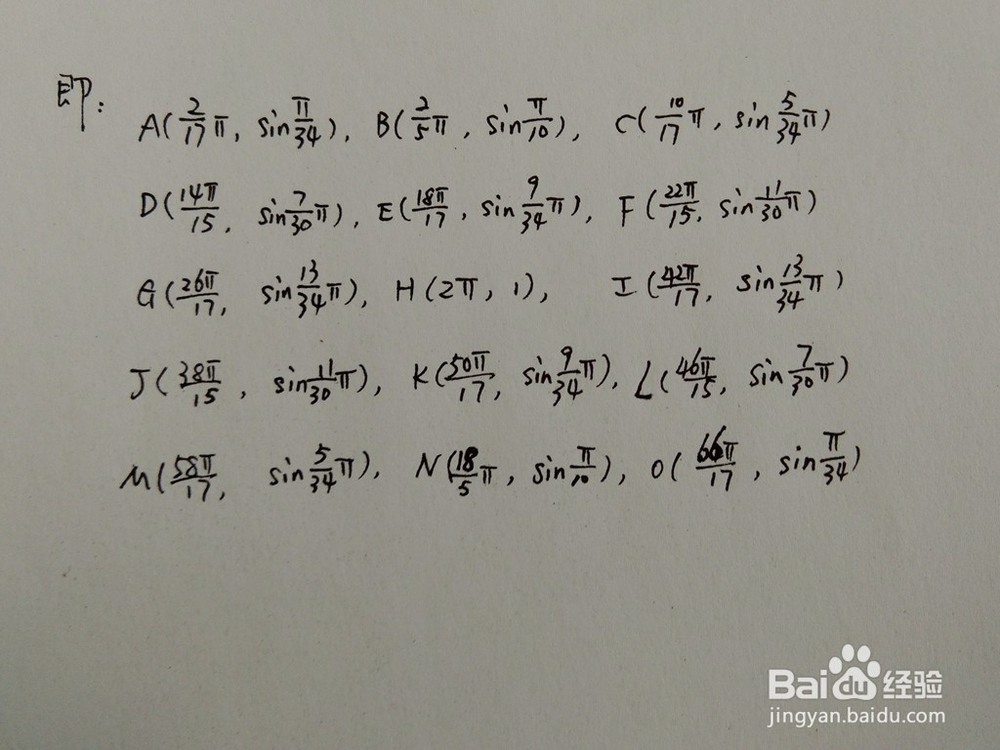 即:
A(2/17 π, sin π/34), B(2/5 π, sin π/10), C(10/17 π, sin 5/34 π)
D(14π/15, sin 7/30 π), E(18π/17, sin 9/34 π), F(22π/15, sin 11/30 π)
G(26π/17, sin 13/34 π), H(2π, 1), I(42π/17, sin 13/34 π)
J(38π/15, sin 11/30 π), K(50π/17, sin 9/34 π), L(46π/15, sin 7/30 π)
M(58π/17, sin 5/34 π), N(18/5 π, sin π/10), O(66π/17, sin π/34)
Baidu 经验
jingyan.baidu.com